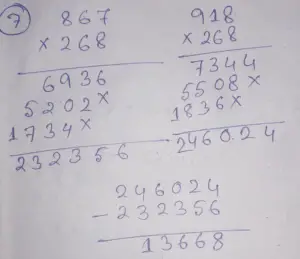 7
867
× 268
6936
5202×
1734×
232356
918
× 268
7344
5508×
1836×
246024
246024
- 232356
13668